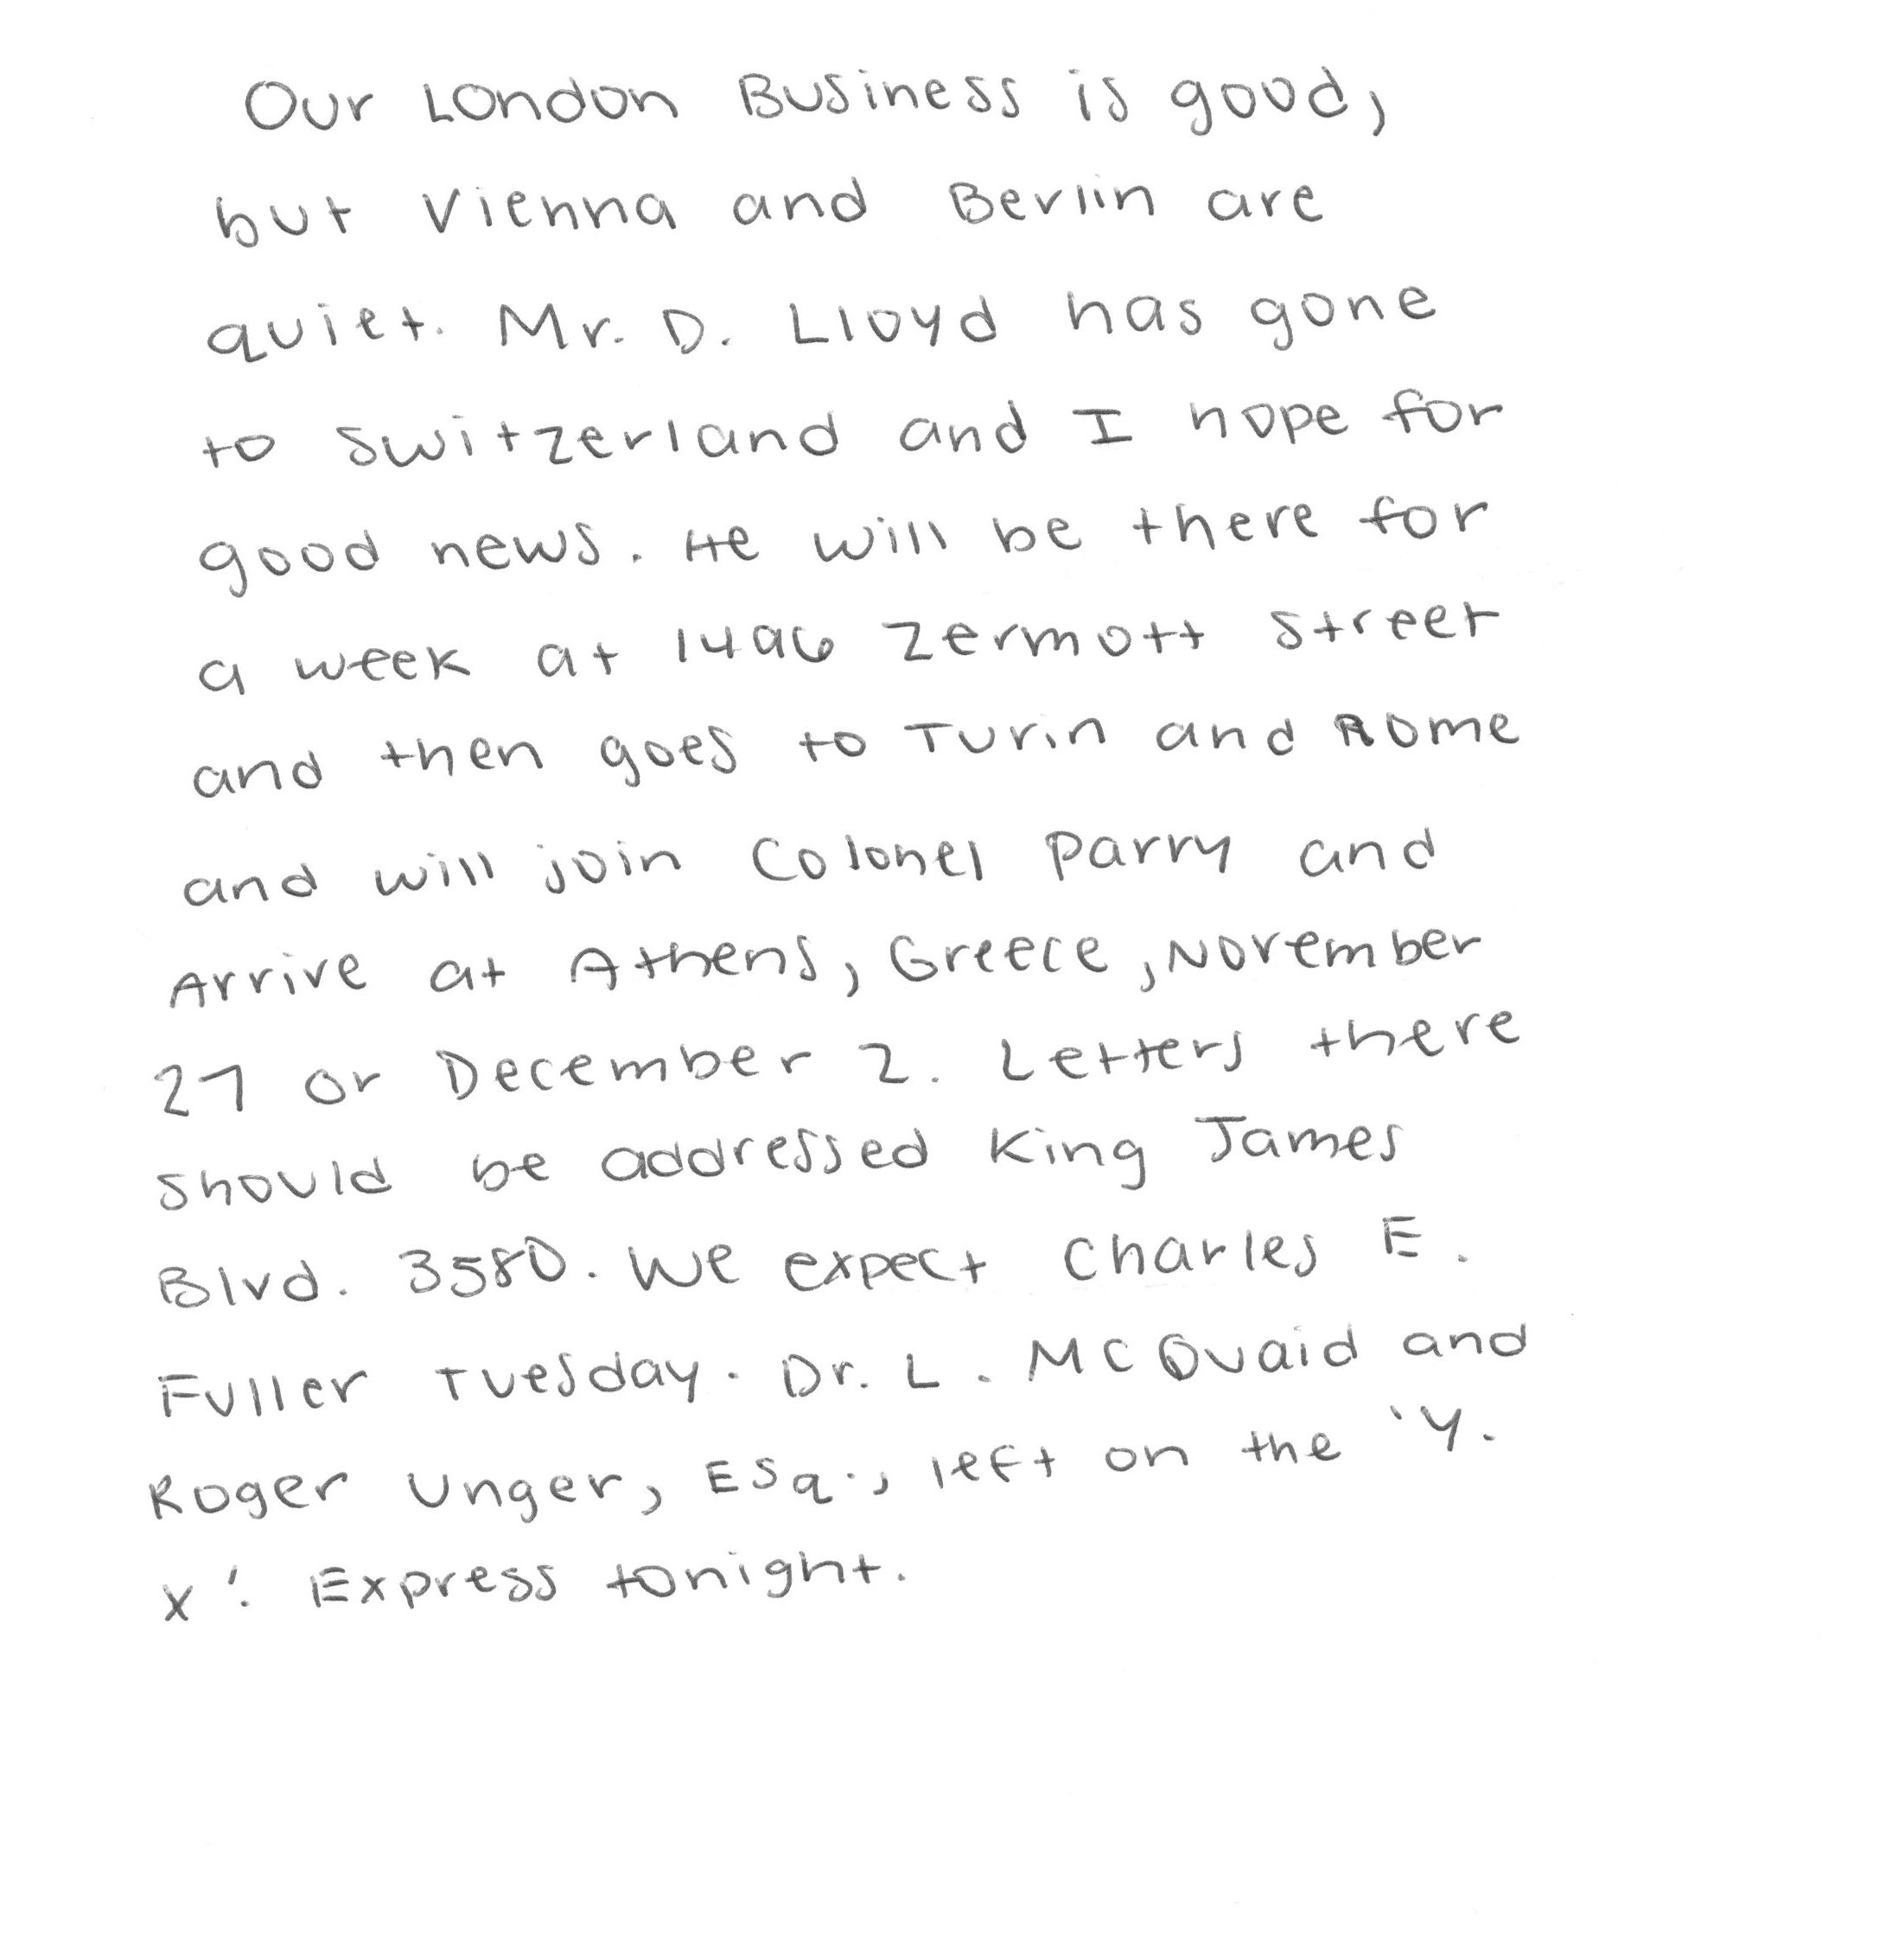 Our London Business is good,
but Vienna and Berlin are
quiet. Mr. D. Lloyd has gone
to Switzerland and I hope for
good news. He will be there for
a week at 1496 Zermott Street
and then goes to Turin and Rome
and will join Colonel Parry and
Arrive at Athens, Greece, November
27 or December 2. Letters there
should be addressed King James
Blvd. 3580. We expect Charles E.
Fuller Tuesday. Dr. L. McQuaid and
Roger Unger, Esq., left on the 'Y.
X'. Express tonight.